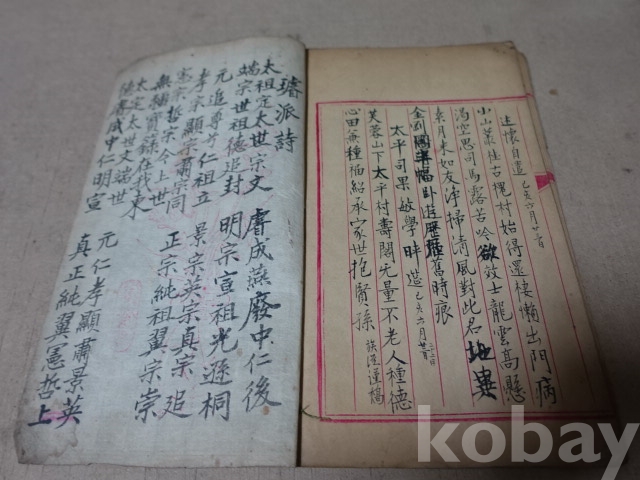 述懷自遣 乙亥六月廿一日
小山叢桂古槐村始得還棲懶出門病
渴空思司馬露苦吟欲效士龍雲高懸
素月來如友淨掃清風對此君地異
金剛圖半幅臥遊歷歷舊時痕
太平司果敏學時造 乙亥六月廿三日
芙蓉山下太平村壽閣無量不老人種德
心田無種福紹承家世抱賢孫
璿派詩
太祖定太世宗文 睿成燕廢中仁後
端宗世祖德追封 明宗宣祖光遜桐
元追尊号仁祖立 景宗英宗真宗追
孝宗顯宗肅宗同 正宗純祖翼宗崇
憲宗哲宗今上世
寶錄在我東
太定太世文端世 元仁孝顯肅景英
德睿成中仁明宣 真正純翼憲哲上
kobay